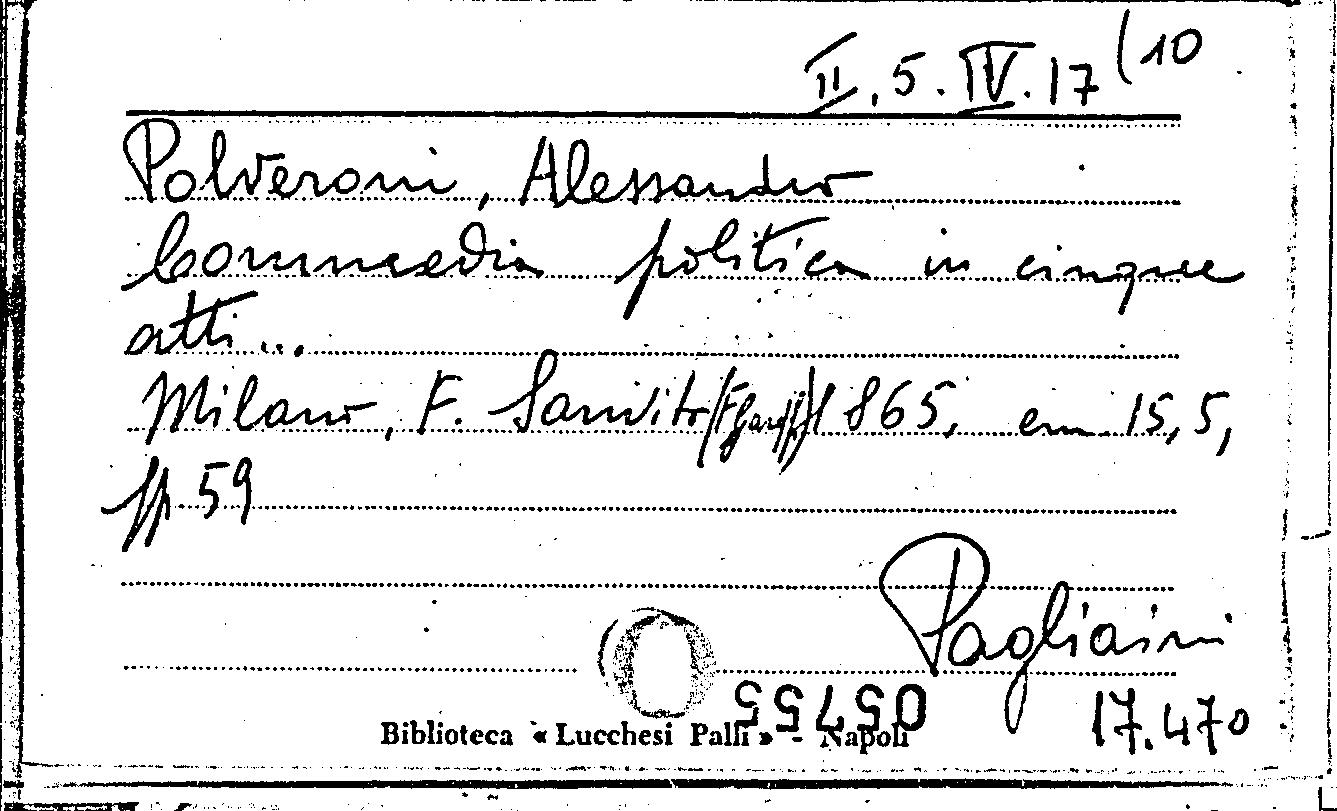 II, 5. IV. 17 (10
Polveroni, Alessandro
Commedia politica in cinque
atti...
Milano, F. Sanvito 1865, cm 15,5,
pp. 59
Pagliaini
17.470
05755
Biblioteca « Lucchesi Palli » - Napoli